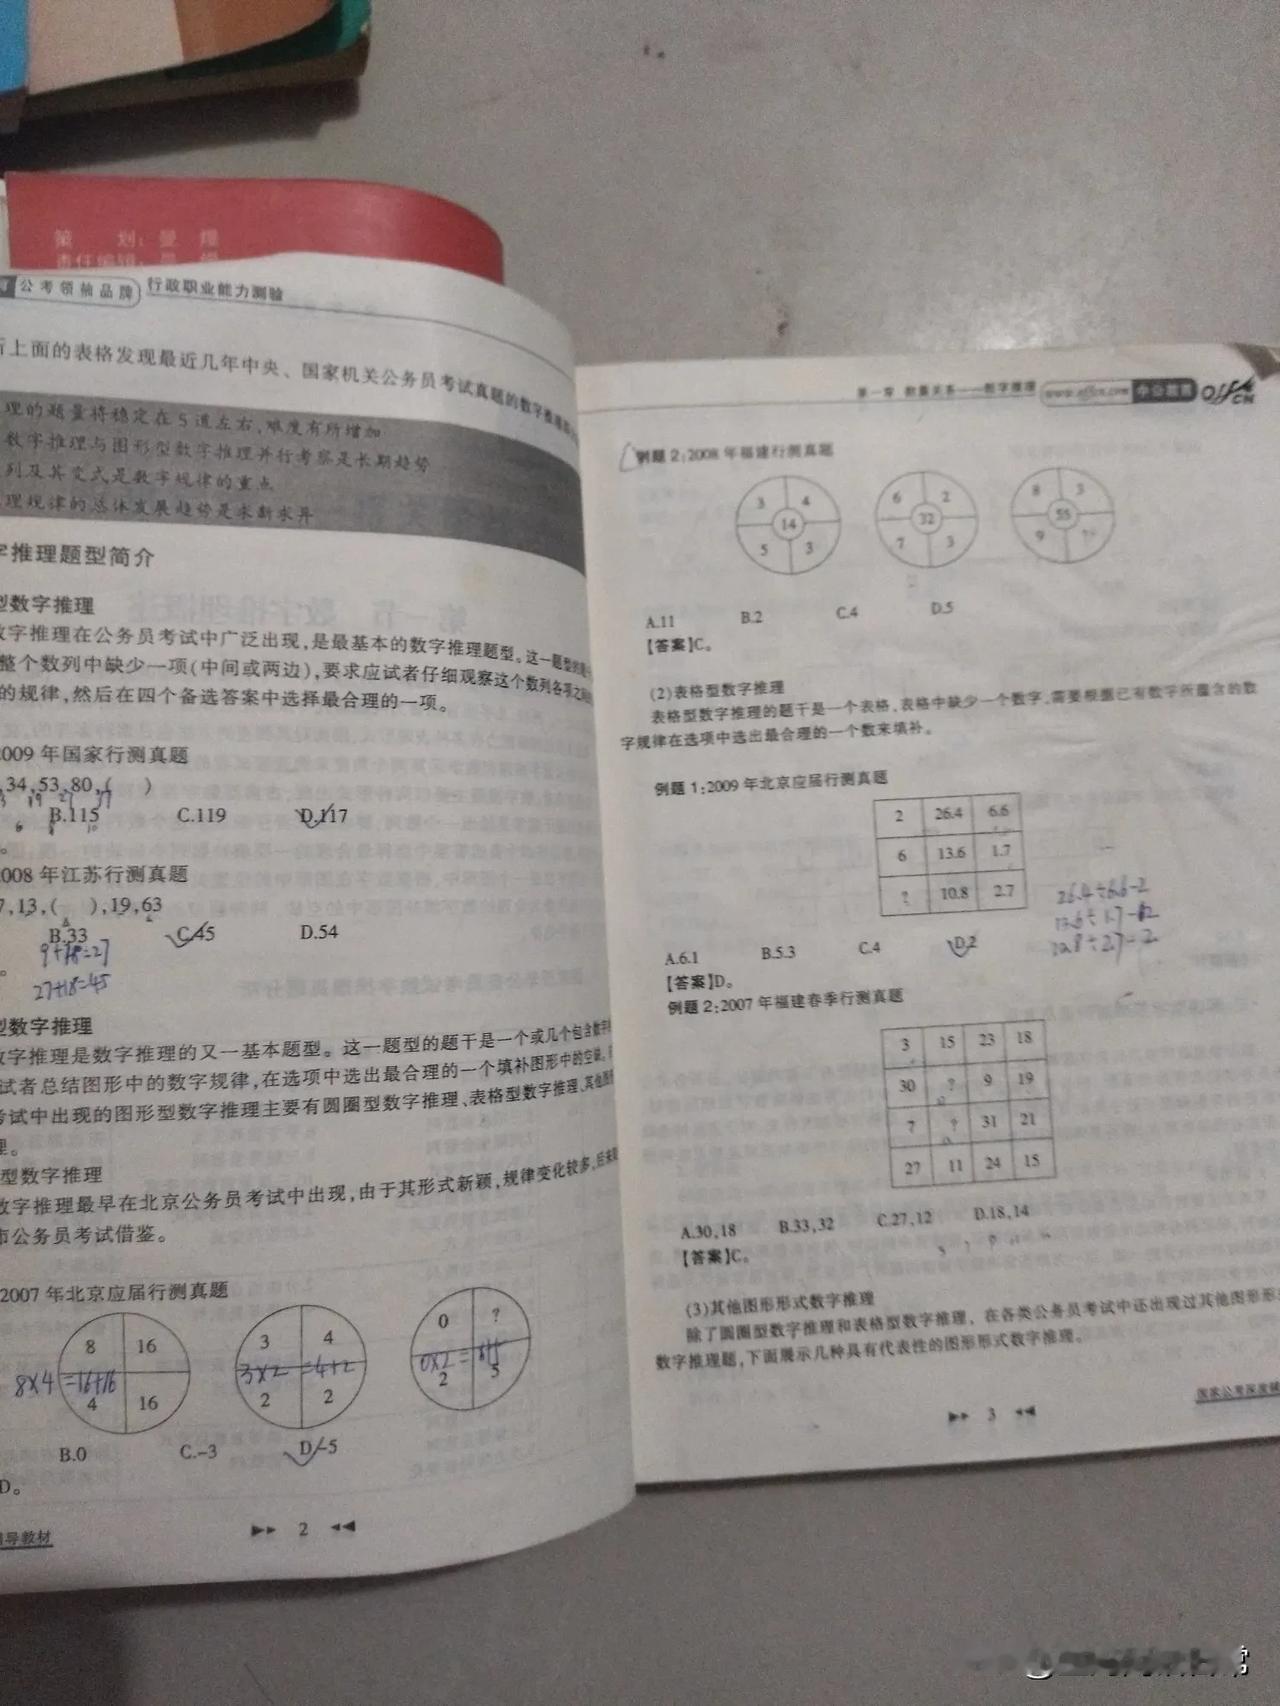 策 划:
责任编辑:
公考领袖品牌 行政职业能力测验
上面的表格发现最近几年中央、国家机关公务员考试真题的数字推理
理的题量将稳定在5道左右,难度有所增加
数字推理与图形型数字推理并行考察是长期趋势
列及其变式是数字规律的重点
理规律的总体发展趋势是求新求异
字推理题型简介
型数字推理
数字推理在公务员考试中广泛出现,是最基本的数字推理题型。这一题型的
整个数列中缺少一项(中间或两边),要求应试者仔细观察这个数列各项之间
的规律,然后在四个备选答案中选择最合理的一项。
2009年国家行测真题
,34,53,80,( )
19 27 37
B.115 C.119 D.117
6 8 10
。
2008年江苏行测真题
7,13,( ),19,63
B.33 C.45 D.54
9+18=27
。
27+18=45
型数字推理
数字推理是数字推理的又一基本题型。这一题型的题干是一个或几个包含数字
试者总结图形中的数字规律,在选项中选出最合理的一个填补图形中的空缺。
考试中出现的图形型数字推理主要有圆圈型数字推理、表格型数字推理、其他图形
理。
型数字推理
数字推理最早在北京公务员考试中出现,由于其形式新颖,规律变化较多,后来
市公务员考试借鉴。
2007年北京应届行测真题
8 16 3 4 0 ?
8×4=16+16 3×2=4+2 0×2=
4 16 2 2 2 5
B.0 C.-3 D.-5
D。
辅导教材
2
第一章 数量关系——数字推理 www.offcn.com 中公教育 OFFCN
例题2:2008年福建行测真题
3 4 6 2 8 3
14 32 55
5 3 7 3 9 ?
A.11 B.2 C.4 D.5
【答案】C。
(2)表格型数字推理
表格型数字推理的题干是一个表格,表格中缺少一个数字,需要根据已有数字所蕴含的数
字规律在选项中选出最合理的一个数来填补。
例题1:2009年北京应届行测真题
2 26.4 6.6
6 13.6 1.7
? 10.8 2.7
26.4÷6.6-2
13.6÷1.7-2
10.8÷2.7-2
A.6.1 B.5.3 C.4 D.2
【答案】D。
例题2:2007年福建春季行测真题
3 15 23 18
30 ? 9 19
7 ? 31 21
27 11 24 15
A.30,18 B.33,32 C.27,12 D.18,14
【答案】C。
(3)其他图形形式数字推理
除了圆圈型数字推理和表格型数字推理,在各类公务员考试中还出现过其他图形形
数字推理题,下面展示几种具有代表性的图形形式数字推理。
国家公考深度辅
3